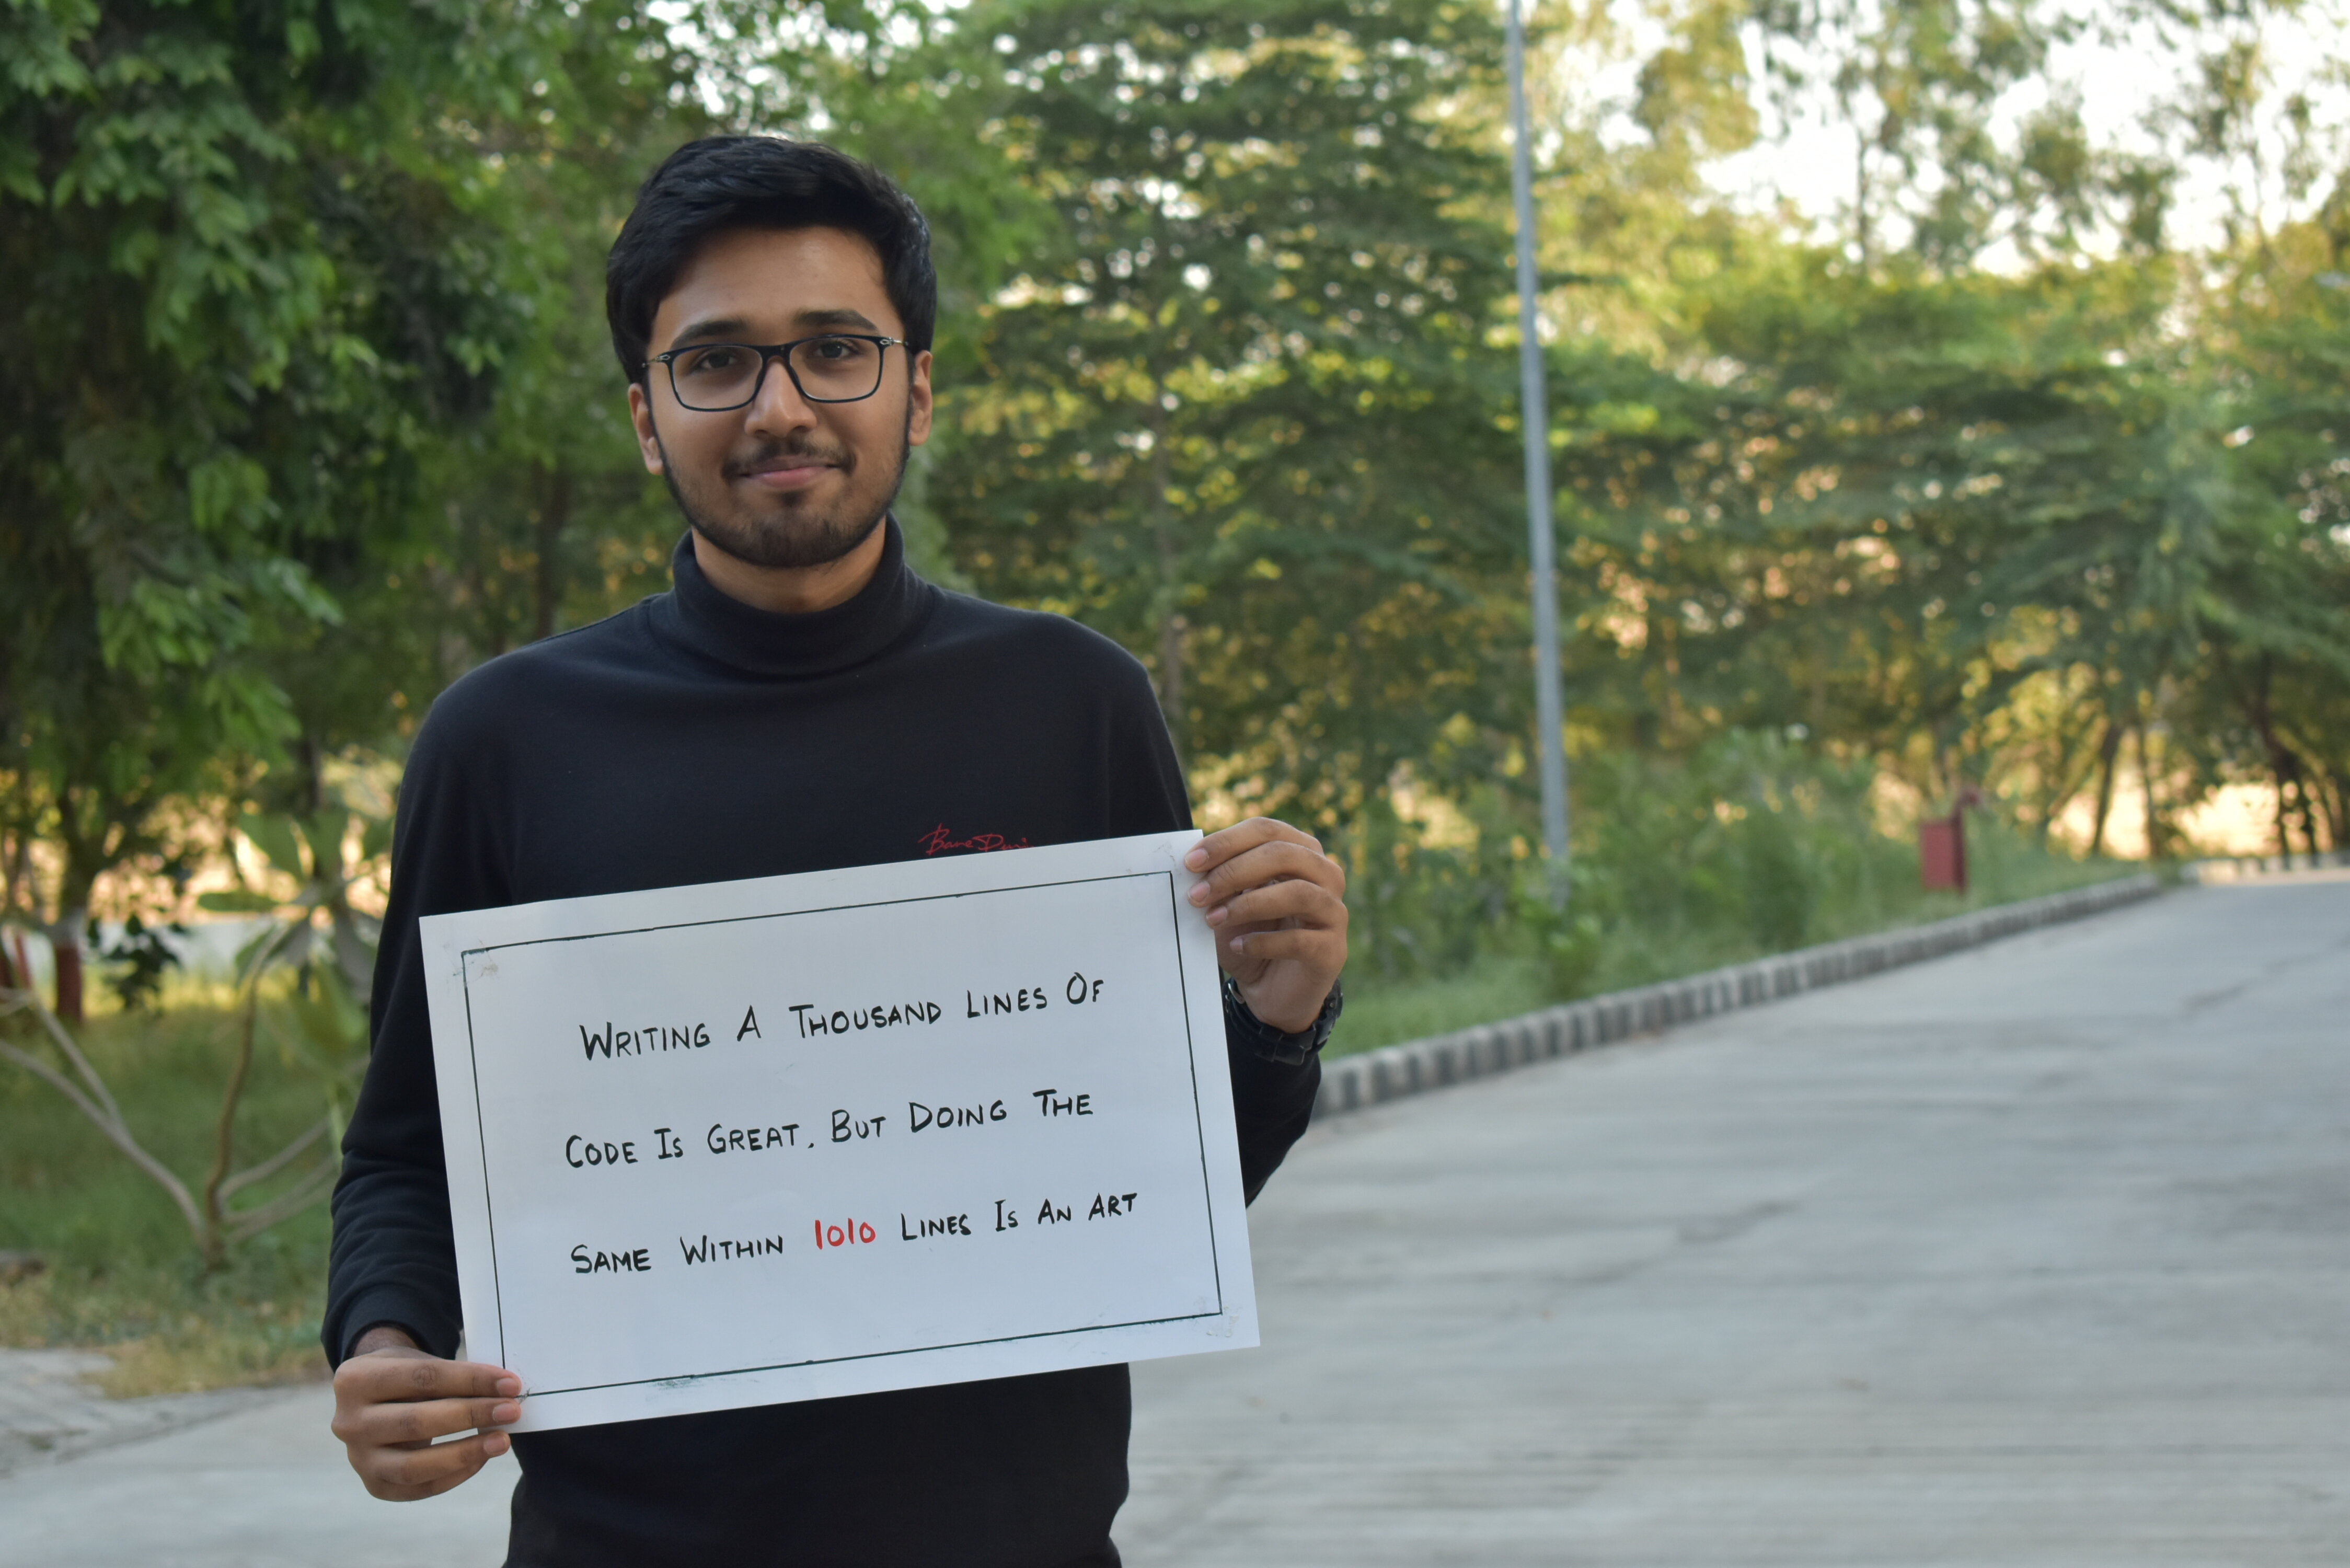 WRITING A THOUSAND LINES OF
CODE IS GREAT. BUT DOING THE
SAME WITHIN 1010 LINES IS AN ART